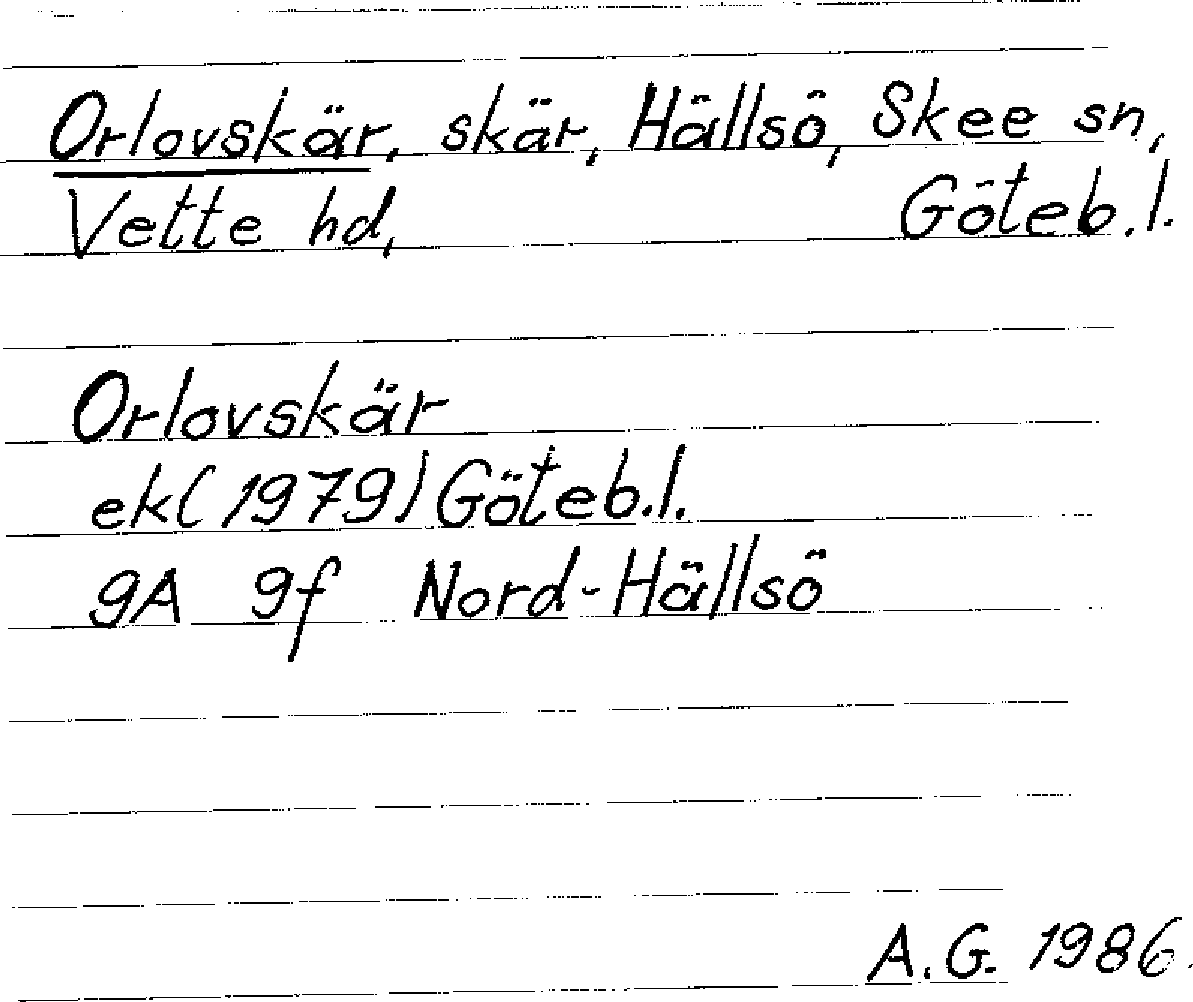 Orlovskär, skär, Hällsö, Skee sn,
Vette hd, Göteb.l.
Orlovskär
ek(1979) Göteb.l.
9A 9f Nord-Hällsö
A.G. 1986.